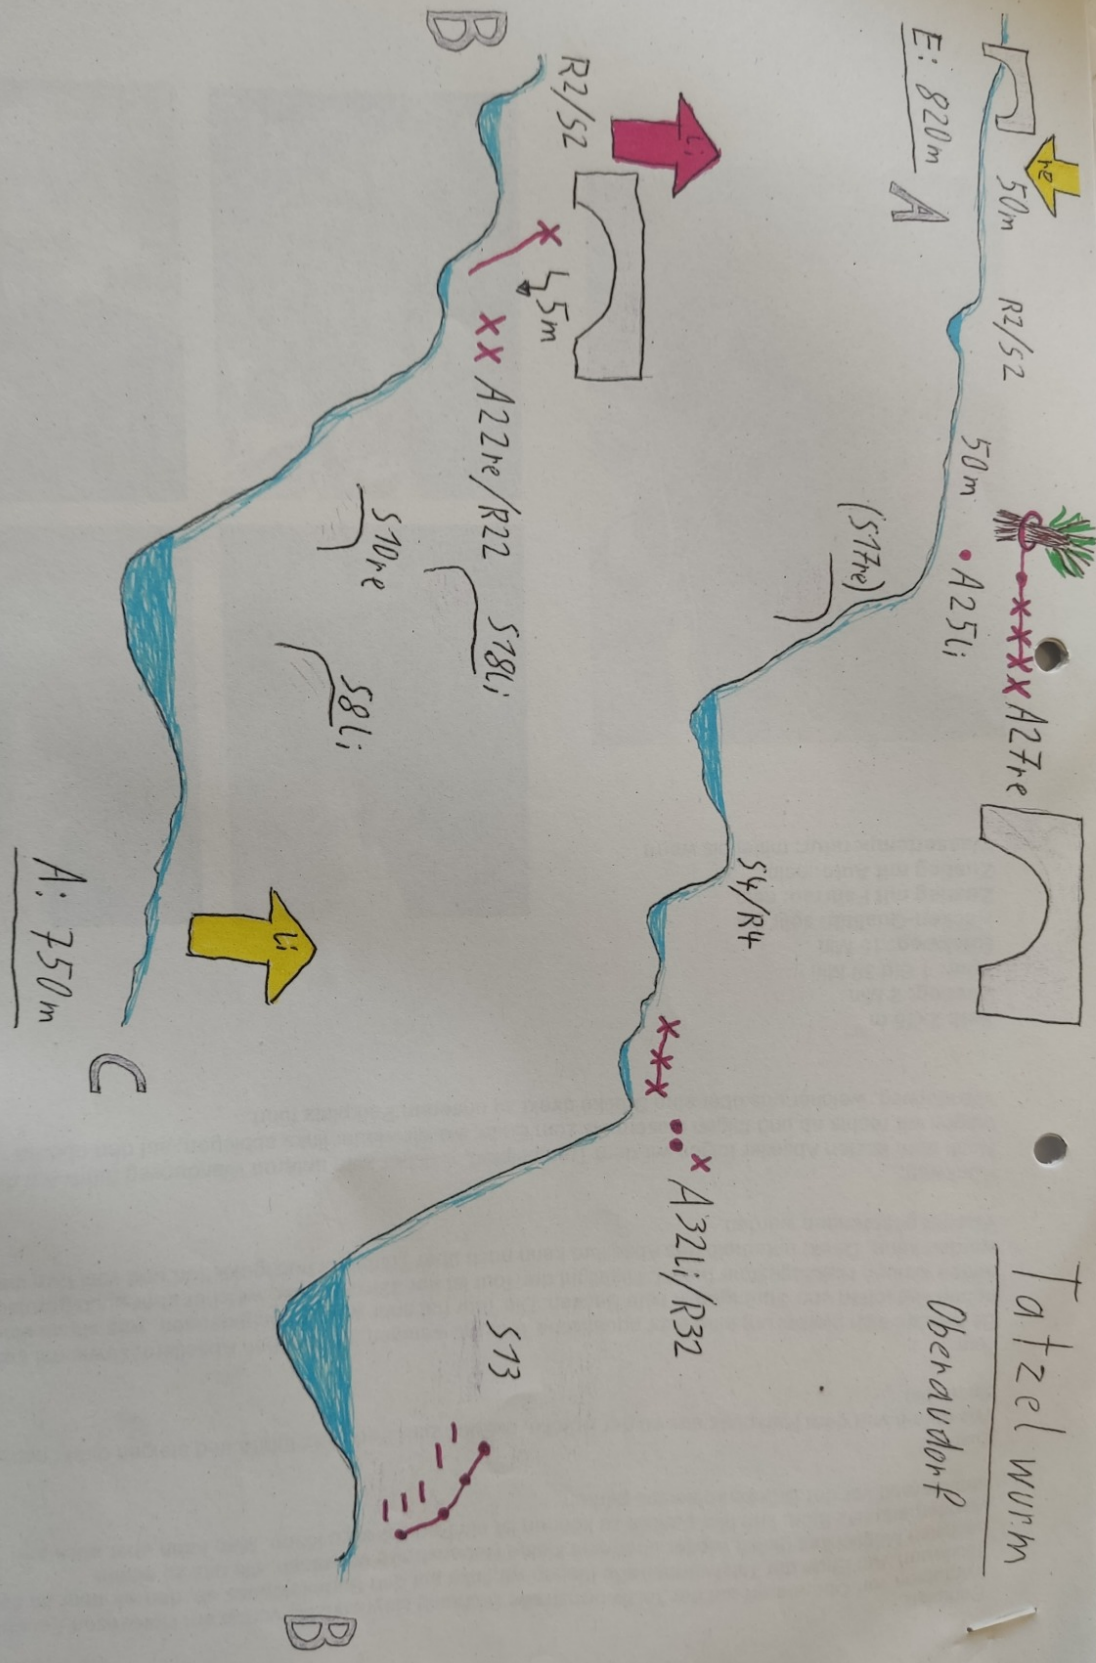 Tatzelwurm
Oberaudorf
re
50m
E: 820m
A
R2/S2
50m
A25li
A27re
(S17re)
S4/R4
A32li/R32
S13
B
B
R2/S2
li
5m
A22re/R22
S10re
S18li
S8li
li
A: 750m
C